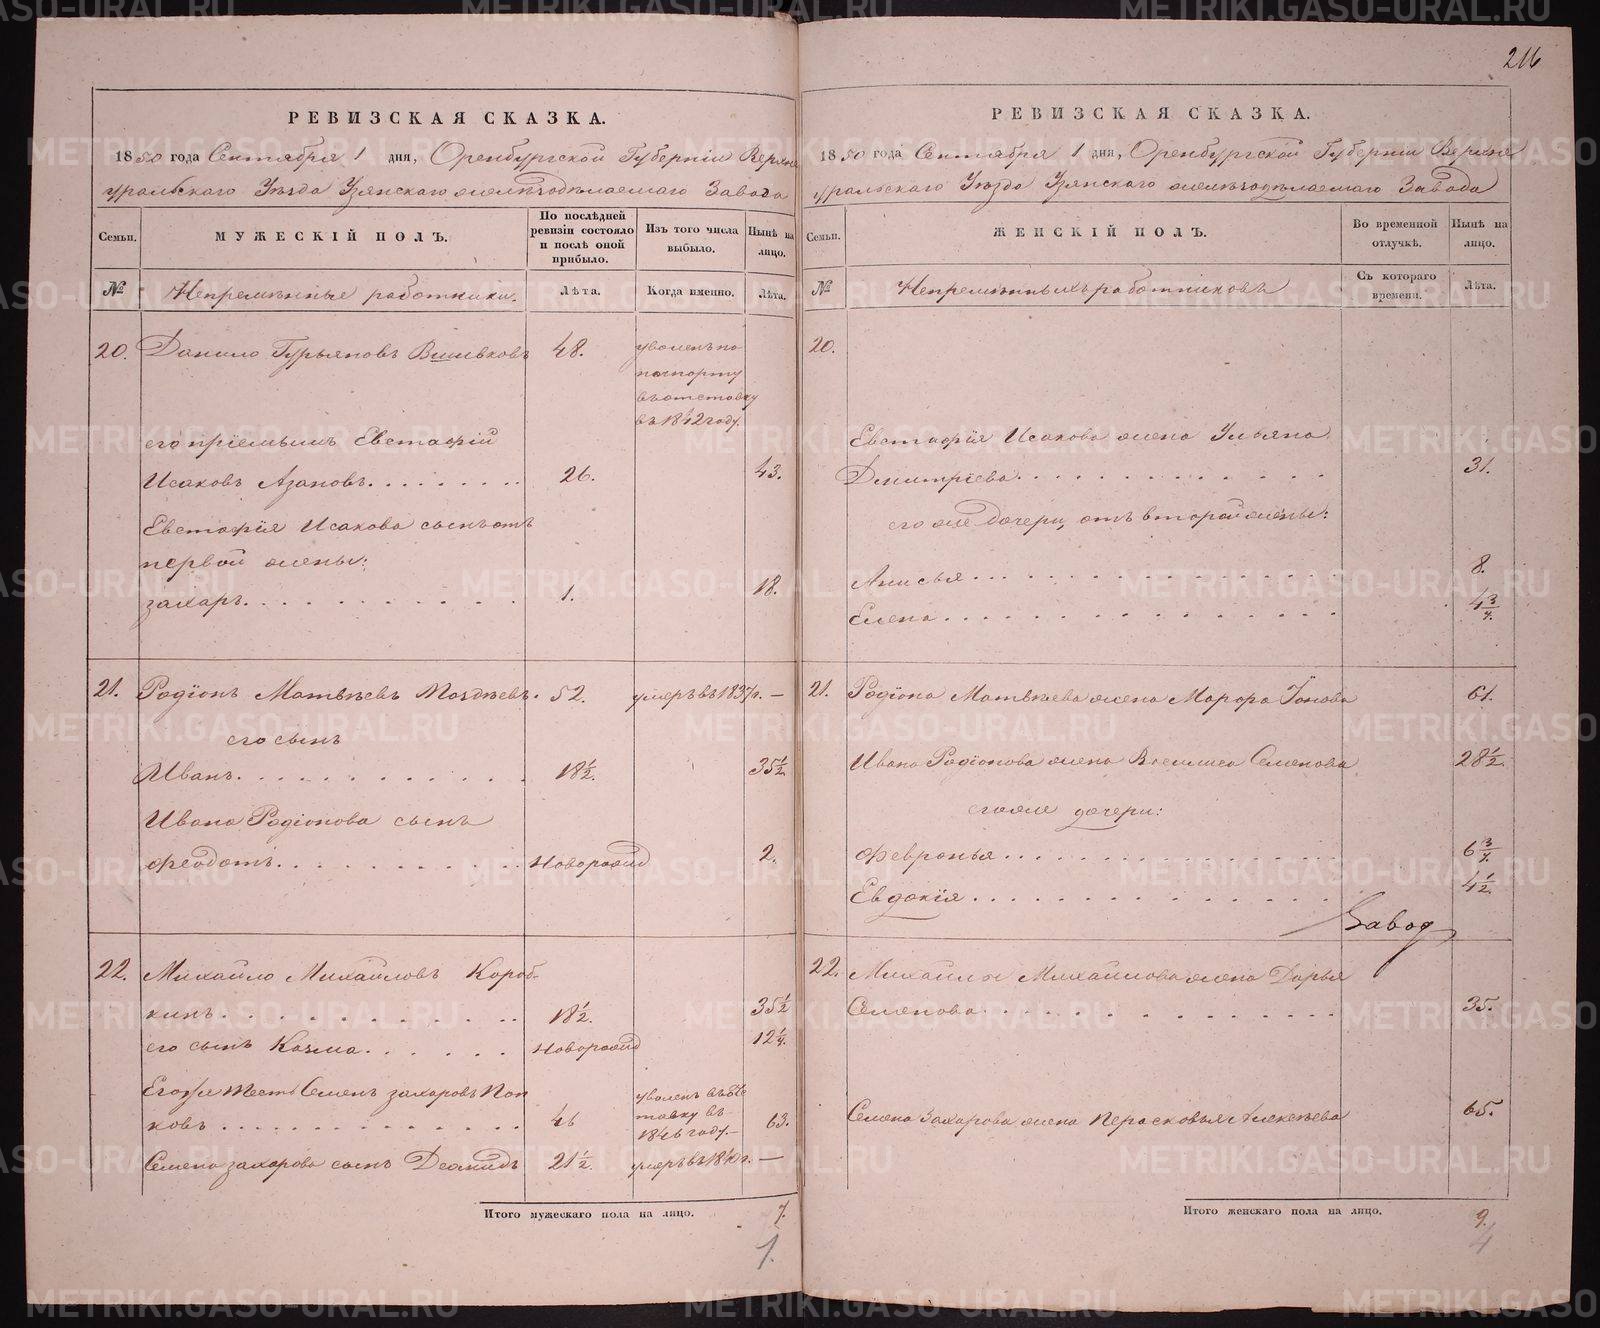 216
РЕВИЗСКАЯ СКАЗКА.
1850 года Сентября 1 дня, Оренбургской Губерніи Верхне
уральскаго Уѣзда Узянскаго желѣзодѣлаемаго Завода
Семьи.
МУЖЕСКІЙ ПОЛЪ.
По послѣдней ревизіи состояло и послѣ оной прибыло.
Изъ того числа выбыло.
Нынѣ на лицо.
№
Непремѣнные работники.
Лѣта.
Когда именно.
Лѣта.
20. Данило Гурьяновъ 48. уволенъ по
пашпорту
въ отставку
въ 1842 году.
его пріемышъ Евстафій
Исаковъ Азановъ. 26. 43.
Евстафія Исакова сынъ отъ
первой жены:
Захаръ. 1. 18.
21. Родіонъ Матвѣевъ Поздѣевъ. 52. умеръ въ 1837 г. —
его сынъ
Иванъ. 18½. 35½.
Ивана Родіонова сынъ
Феодотъ. Новорожд 2.
22. Михайло Михайловъ Короб-
кинъ. 18½. 35½
его сынъ Козма. Новорожд 12¼.
Егоже тесть Семенъ Захаровъ Поп
ковъ 46 уволенъ въ от
ставку въ
1846 году.— 63.
Семена Захарова сынъ Деомидъ 21½. умеръ въ 1840 г. —
Итого мужескаго пола на лицо. 7.
7.
РЕВИЗСКАЯ СКАЗКА.
1850 года Сентября 1 дня, Оренбургской Губерніи Верхне
уральскаго Уѣзда Узянскаго желѣзодѣлаемаго Завода
Семьи.
ЖЕНСКІЙ ПОЛЪ.
Во временной отлучкѣ.
Нынѣ на лицо.
№
Непремѣнныхъ работниковъ
Съ котораго времени.
Лѣта.
20.
Евстафія Исакова жена Ульяна
Дмитріева. 31.
его же дочери, отъ второй жены:
Анисья 8.
Елена 4¾.
21. Родіона Матвѣева жена Марфа Іонова 61.
Ивана Родіонова жена Василиса Семенова 28½.
егоже дочери:
Февронья 6¾.
Евдокія 4½.
Завод
22. Михайлы Михайлова жена Дарья
Семенова 35.
Семена Захарова жена Перасковья Алексѣева 65.
Итого женскаго пола на лицо. 9.
4
METRIKI.GASO-URAL.RU